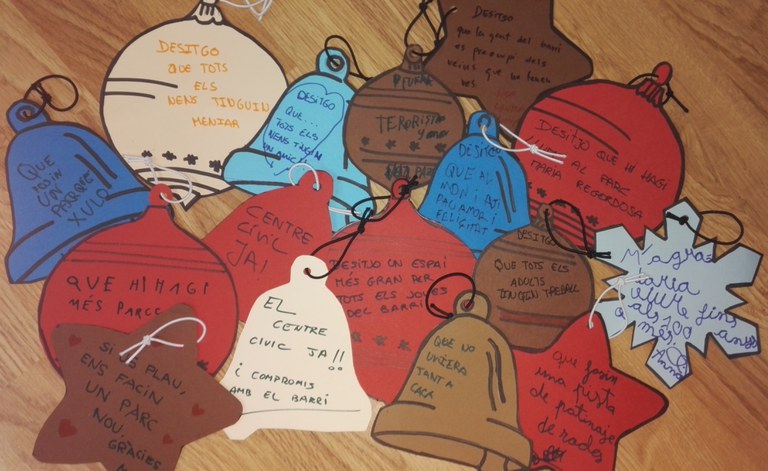 DESITGO
QUE TOTS
ELS
NENS TINGUIN
MENJAR
DESITGO
QUE...
TOTS ELS
NENS TINGUIN
UN AMIC
TERORISTA
DESITJO
que la gent del barri
es preocupi dels
DESITJO QUE HI HAGI
AL PARC
MARIA REGORDOSA
QUE
FOSIN
UN
PARQUE
XULO
DESITJO
QUE AL
MON HI AGI
PAU AMOR I
FELICITAT
CENTRE
CIVIC
JA!
DESITJO UN ESPAI
MÉS GRAN PER
TOTS ELS JOVES
DEL BARRI
DESITGO
QUE TOTS ELS
ADULTS
TINGUIN TREBALL
M'agradaria
viure fins
als 100 anys
més
Anna
QUE HI HAGI
MÉS PARCS
EL
CENTRE
CIVIC JA!!
¡ COMPROMIS
AMB EL BARRI
QUE NO
UVIERA
TANTA
CACA
que fosin
una pista
de patinaje
de rodes
SI US PLAU,
ENS FACIN
UN PARC
NOU.
GRÀCIES